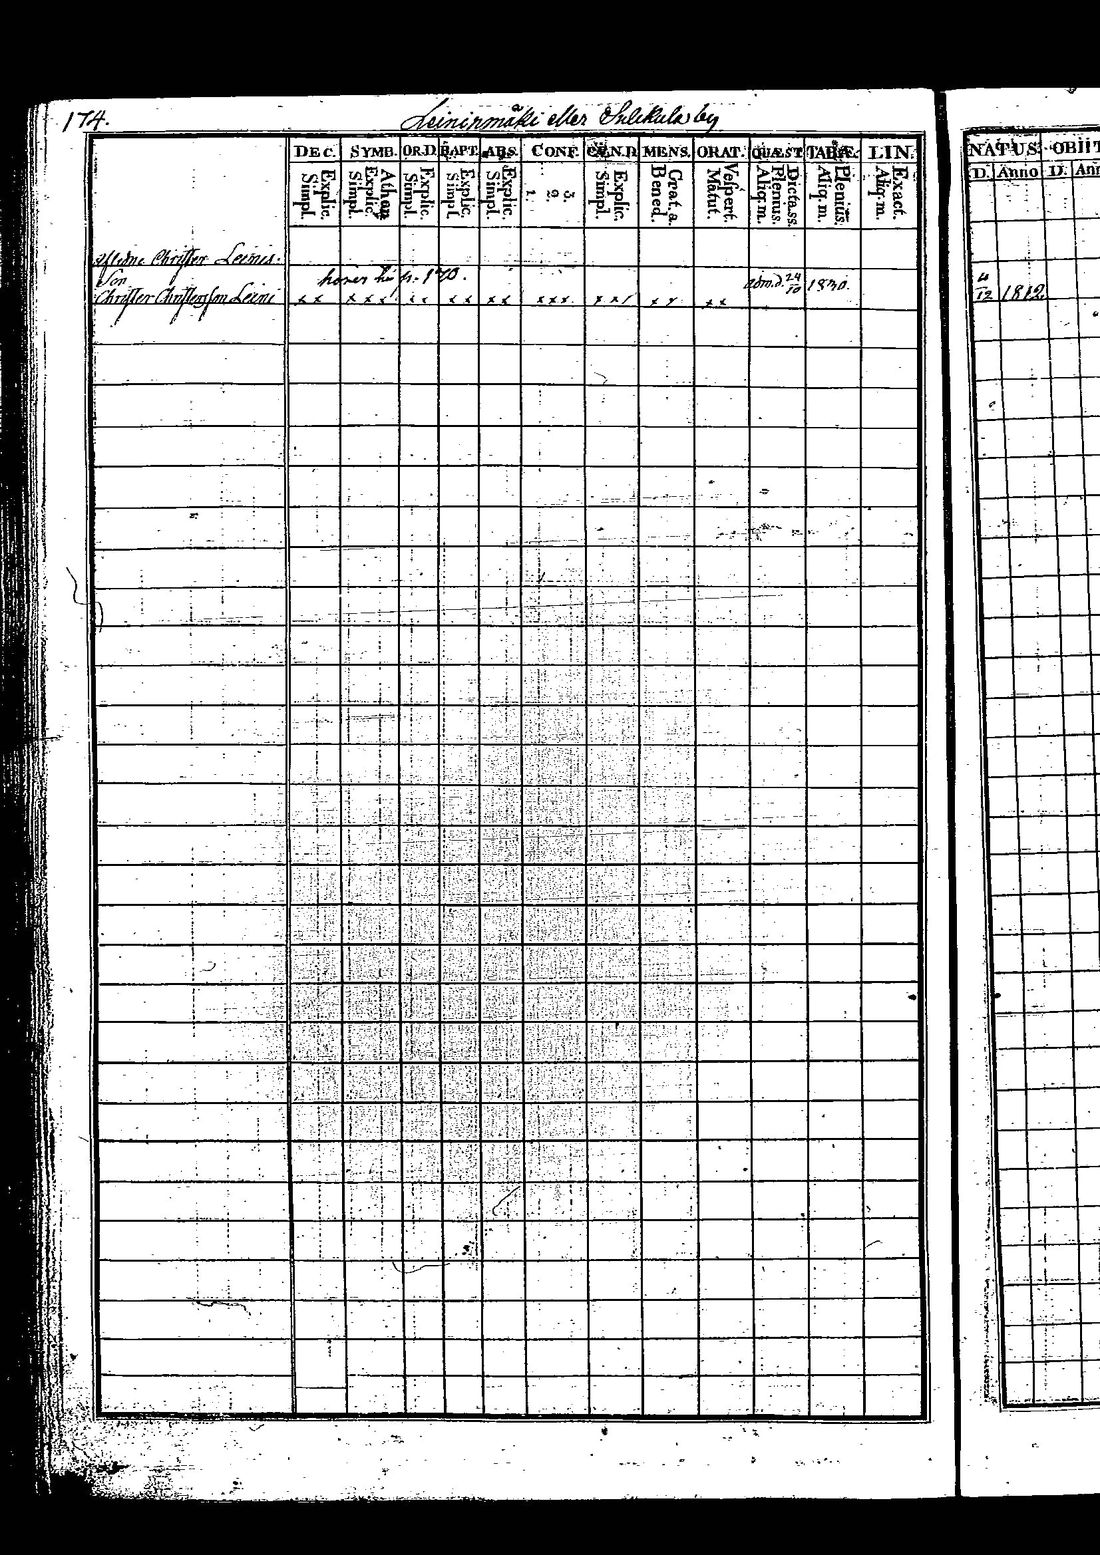 174. Leininmäki eller Sulikula by
DEC. SYMB. OR.D. BAPT. ABS. CONF. CŒN.D. MENS. ORAT. QUÆST. TABÆ. LIN. NATUS. OBIIT
Explic. Simpl. Athan. Explic. Simpl. Explic. Simpl. Explic. Simpl. Explic. Simpl. 3. 2. 1. Explic. Simpl. Grat. a. Bened. Vespert. Matut. Dicta ss. Plenius. Aliq. m. Plenius. Aliq. m. Exact. Aliq. m. D. Anno D. Ann
Christer Leinis.
Son hörer hit p. 170. adm. d. 24/10 1830.
Christer Christersson Leini x x x x x x x x x x x x x x x x x x x x x 4/12 1812